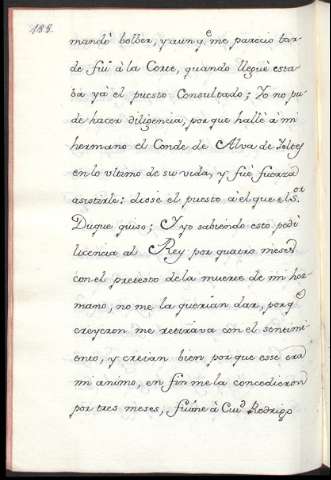 188.
mandó bolber, y aunq.e me parecio tar-
de fui à la Corte, quando lleguè esta-
ba yà el puesto Consultado; Yo no pu-
de hacer diligencia, porque hallè à mi
hermano el Conde de Alva de
en lo vltimo de su vida, y fuè fuerza
asistirle: diose el puesto à el que el S.or
Duque quiso; Y yo sabiendo esto pedi
licencia al Rey por quatro meses
con el pretesto de la muerte de mi her-
mano, no me la querian dar, porq.e
creyeron me retirava con el sentimi-
ento, y creìan bien porque esse era
mi animo, en fin me la concedieron
por tres meses, fuime à Ciu.d Rodrigo